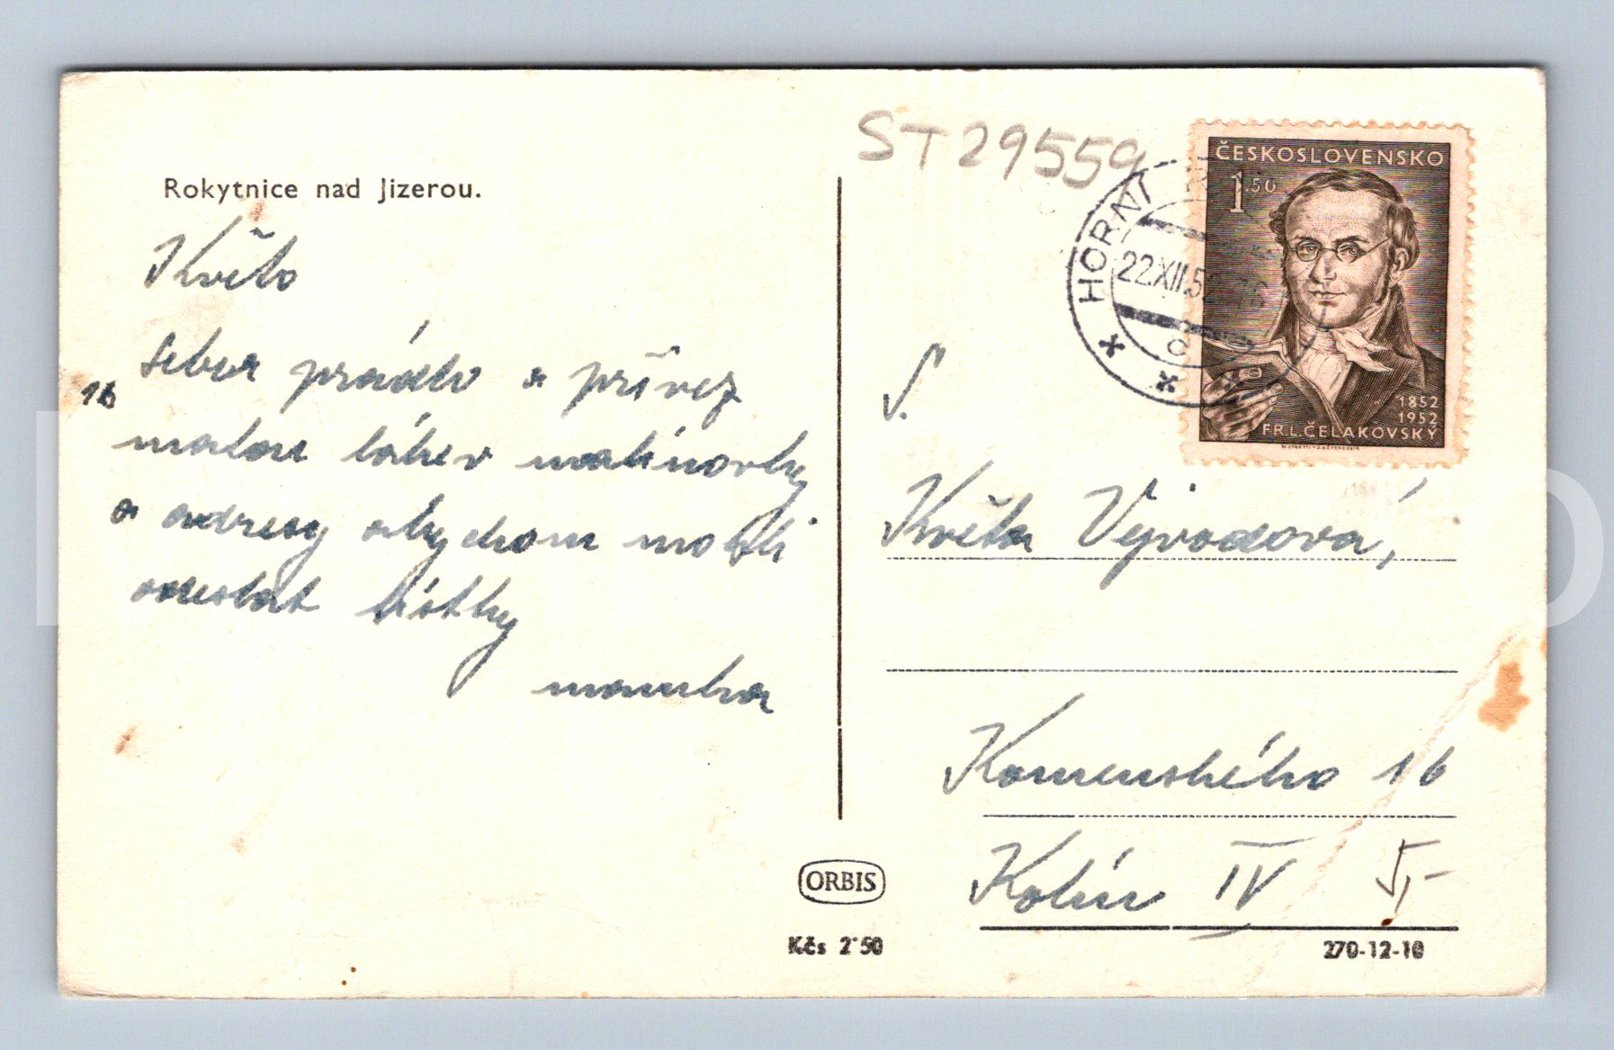 Rokytnice nad Jizerou.
Květo
seber prádlo a přivez
16
malou láhev malinovky
a adresy abychom mohli
odeslat lístky
mamka
ST 29559
HORNÍ
22.XII.52
ČESKOSLOVENSKO
1.50
1852
1952
FR.L.ČELAKOVSKÝ
S.
Květa Vejvodová,
Komenského 16
Kolín IV
5,-
ORBIS
Kčs 2·50
270-12-10